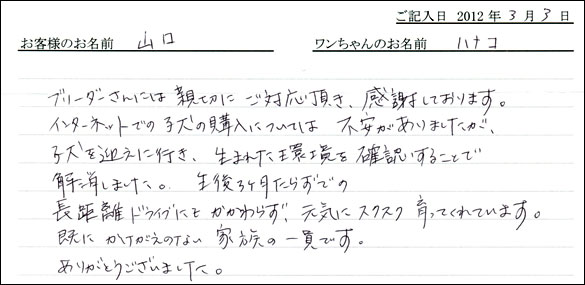 ご記入日 2012年 3月 3日
お客様のお名前 山口 ワンちゃんのお名前 ハナコ
ブリーダーさんには 親切に ご対応頂き、感謝しております。
インターネットでの子犬の購入については 不安がありましたが、
子犬を迎えに行き、生まれた環境を確認することで
解消しました。 生後3ヶ月たらずでの
長距離ドライブにもかかわらず、元気にスクスク育ってくれています。
既に かけがえのない 家族の一員です。
ありがとうございました。